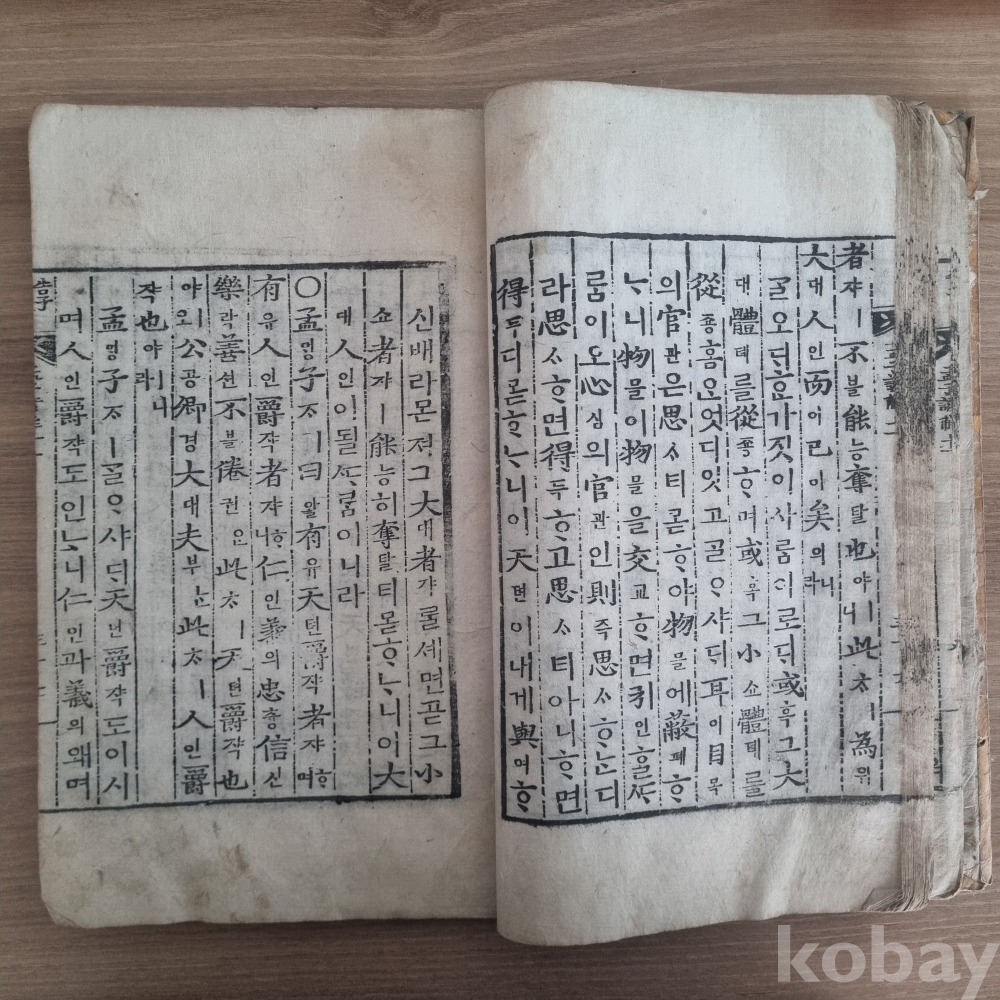 者쟈ㅣ不블能능奪탈也야ㅣ니此ᄎᆞㅣ為위
大대人인而이已이矣의니라
ᄀᆞᆯ오ᄃᆡᄒᆞᆫ가짓이사ᄅᆞᆷ이로ᄃᆡ或혹그大
대體톄ᄅᆞᆯ從죵ᄒᆞ며或혹그小쇼體톄ᄅᆞᆯ
從죵홈ᄋᆞᆫ엇디잇고ᄀᆞᆯᄋᆞ샤ᄃᆡ耳이目목
의官관은思ᄉᆞ티몯ᄒᆞ야物믈에蔽폐ᄒᆞ
ᄂᆞ니物믈이物믈을交교ᄒᆞ면引인ᄒᆞᆯᄯᆞ
ᄅᆞᆷ이오心심의官관인則즉思ᄉᆞᄒᆞᄂᆞᆫ디
라思ᄉᆞᄒᆞ면得득ᄒᆞ고思ᄉᆞ티아니ᄒᆞ면
得득디몯ᄒᆞᄂᆞ니이天텬이내게與여ᄒᆞ
신배라몬져그大대者쟈ᄅᆞᆯ셰면곧그小
쇼者쟈ㅣ能능히奪탈티몯ᄒᆞᄂᆞ니이大
대人인이될ᄯᆞᄅᆞᆷ이니라
○孟ᄆᆡᆼ子ᄌᆞㅣ曰왈有유天텬爵쟉者쟈ᄒᆞ며
有유人인爵쟉者쟈ᄒᆞ니仁인義의忠튱信신
樂락善션不블倦권은此ᄎᆞㅣ天텬爵쟉也
야ㅣ오公공卿경大대夫부ᄂᆞᆫ此ᄎᆞㅣ人인爵
쟉也야ㅣ니라
孟ᄆᆡᆼ子ᄌᆞㅣᄀᆞᆯᄋᆞ샤ᄃᆡ天텬爵쟉도이시
며人인爵쟉도인ᄂᆞ니仁인과義의왜며
告子
kobay